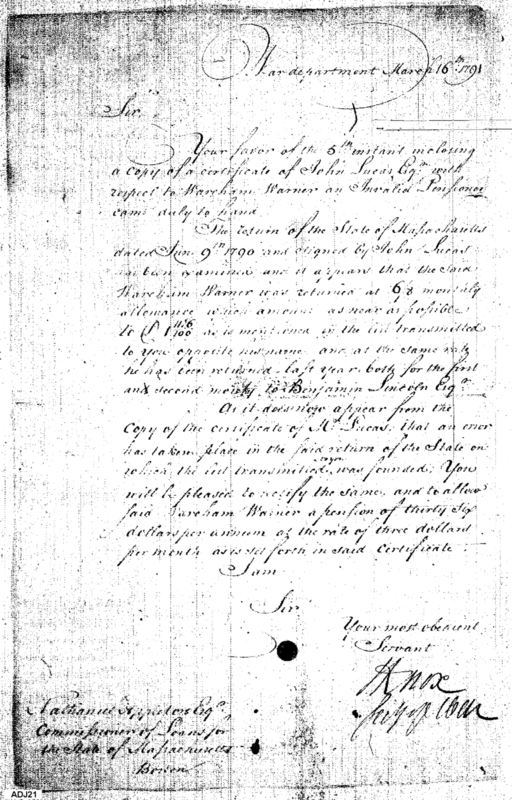 War department March 16th 1791
Sir.
Your favor of the 5th instant inclosing
a copy of a certificate of John Lucas Esqr. with
respect to Wareham Warner an Invalid Pensioner
came duly to hand
The return of the State of Massachusetts
dated June 9th 1790 and signed by John Lucas
has been examined and it appears that the said
Wareham Warner was returned at 6/8 monthly
allowance which amount as near as possible
to as is mentioned in the list transmitted
to you opposite his name and at the same rate
he has been returned last year both for the first
and second money to Benjamin Lincoln Esqr.
As it does now appear from the
Copy of the certificate of Mr. Lucas, that an error
has taken place in the said return of the State on
which the list transmitted to you was founded; You
will be pleased to rectify the same, and to allow
said Wareham Warner a pension of thirty Six
dollars per annum at the rate of three dollars
per month as is set forth in said Certificate.
I am
Sir
Your most obedient
Servant
HKnox
Secy of War
Nathaniel Appleton Esqr.
Commissioner of Loans for
the State of Massachusetts
Boston
ADJ21